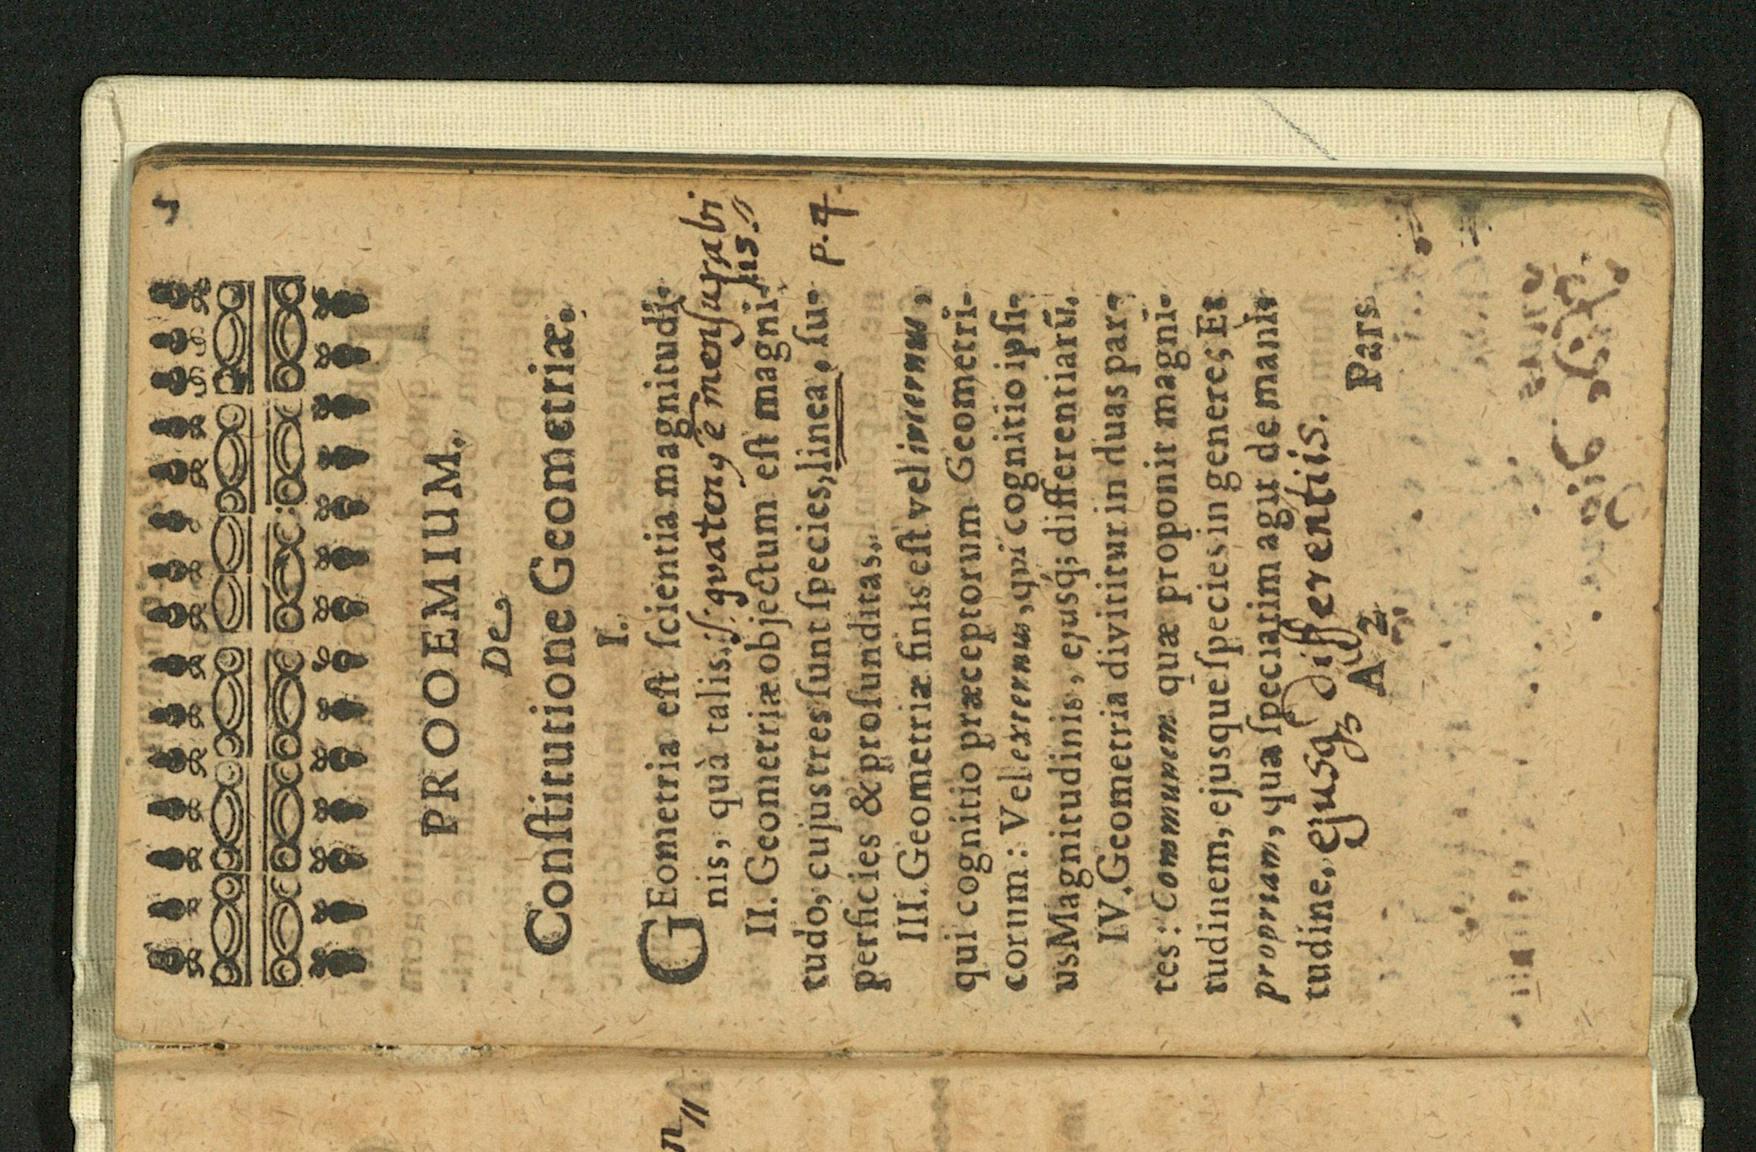 PROOEMIUM.
De
Conſtitutione Geometriæ.
I.
GEometria eſt ſcientia magnitudi-
nis, quà talis. ſ. qvateny ē menſurabi
lis
II. Geometriæ objectum eſt magni-
tudo, cujus tres ſunt ſpecies, linea, ſu- p. 4
perficies & profunditas.
III. Geometriæ finis eſt vel internus,
qui cognitio præceptorum Geometri-
corum: Vel externus, qui cognitio ipſi-
us Magnitudinis, ejusq; differentiarū.
IV. Geometria divititur in duas par-
tes: Communem quæ proponit magni-
tudinem, ejusque ſpecies in genere; Et
propriam, quæ ſpeciatim agit de mani-
tudine. ejusq; differentiis.
A 2 Pars